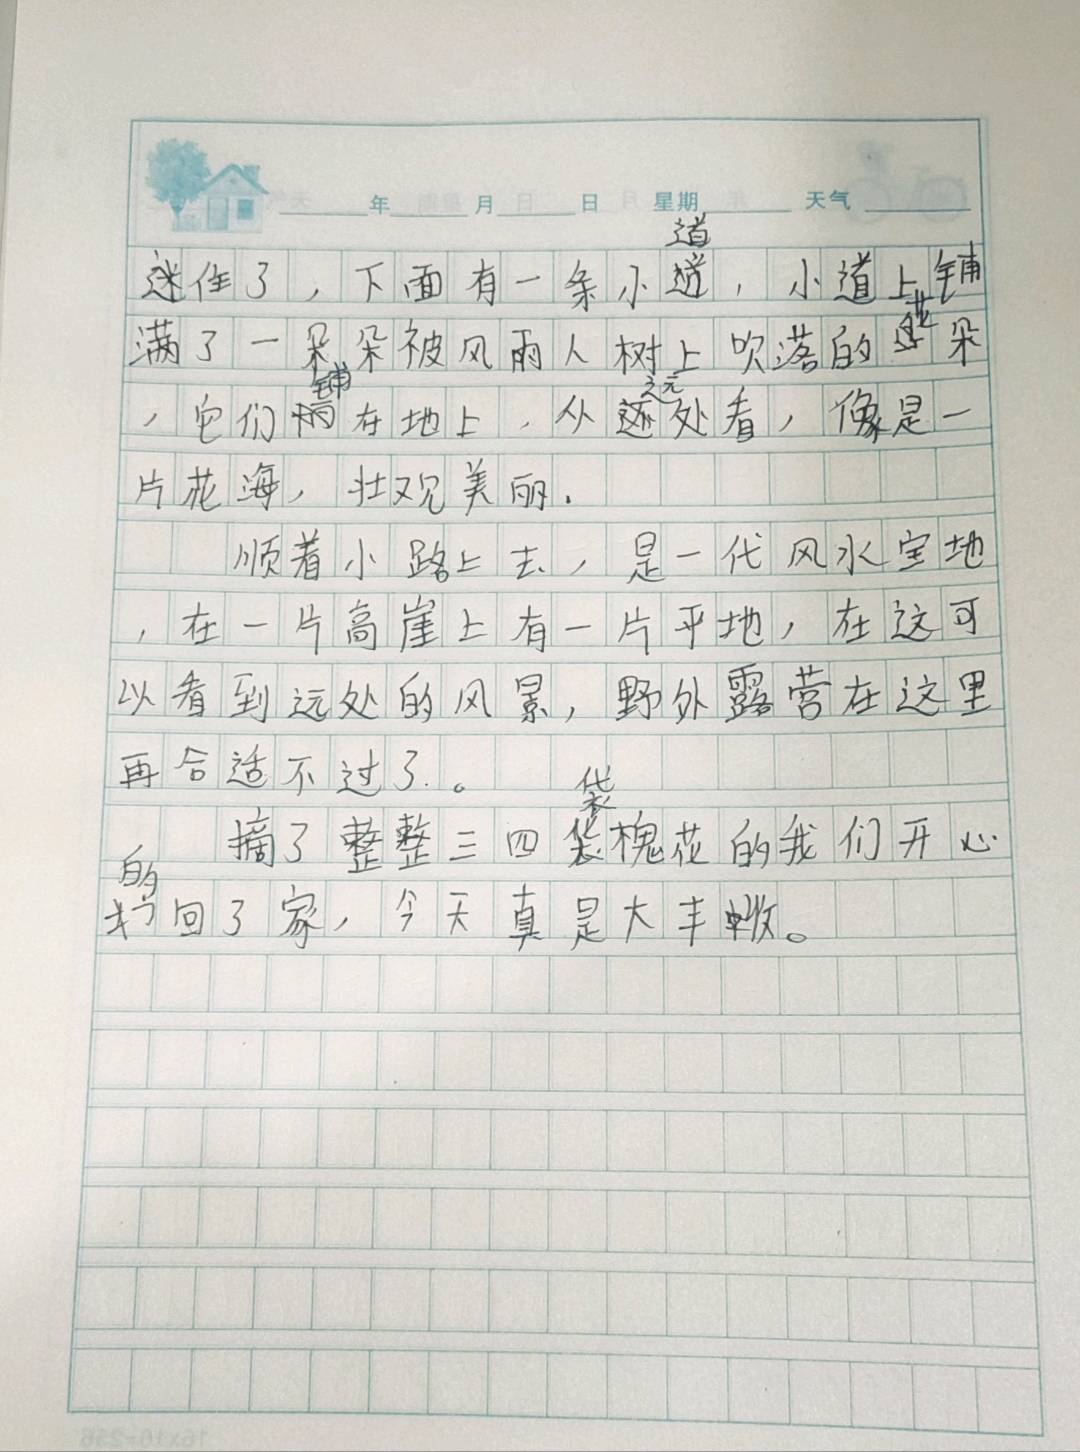 年 月 日 星期 天气
道
迷住了，下面有一条小道，小道上铺
花
满了一朵朵被风雨人树上吹落的朵
铺 远
，它们在地上，从处看，像是一
片花海，壮观美丽.
顺着小路上去，是一代风水宝地
，在一片高崖上有一片平地，在这可
以看到远处的风景，野外露营在这里
再合适不过了.。
袋
摘了整整三四袋槐花的我们开心
的
回了家，今天真是大丰收。
16×16=256